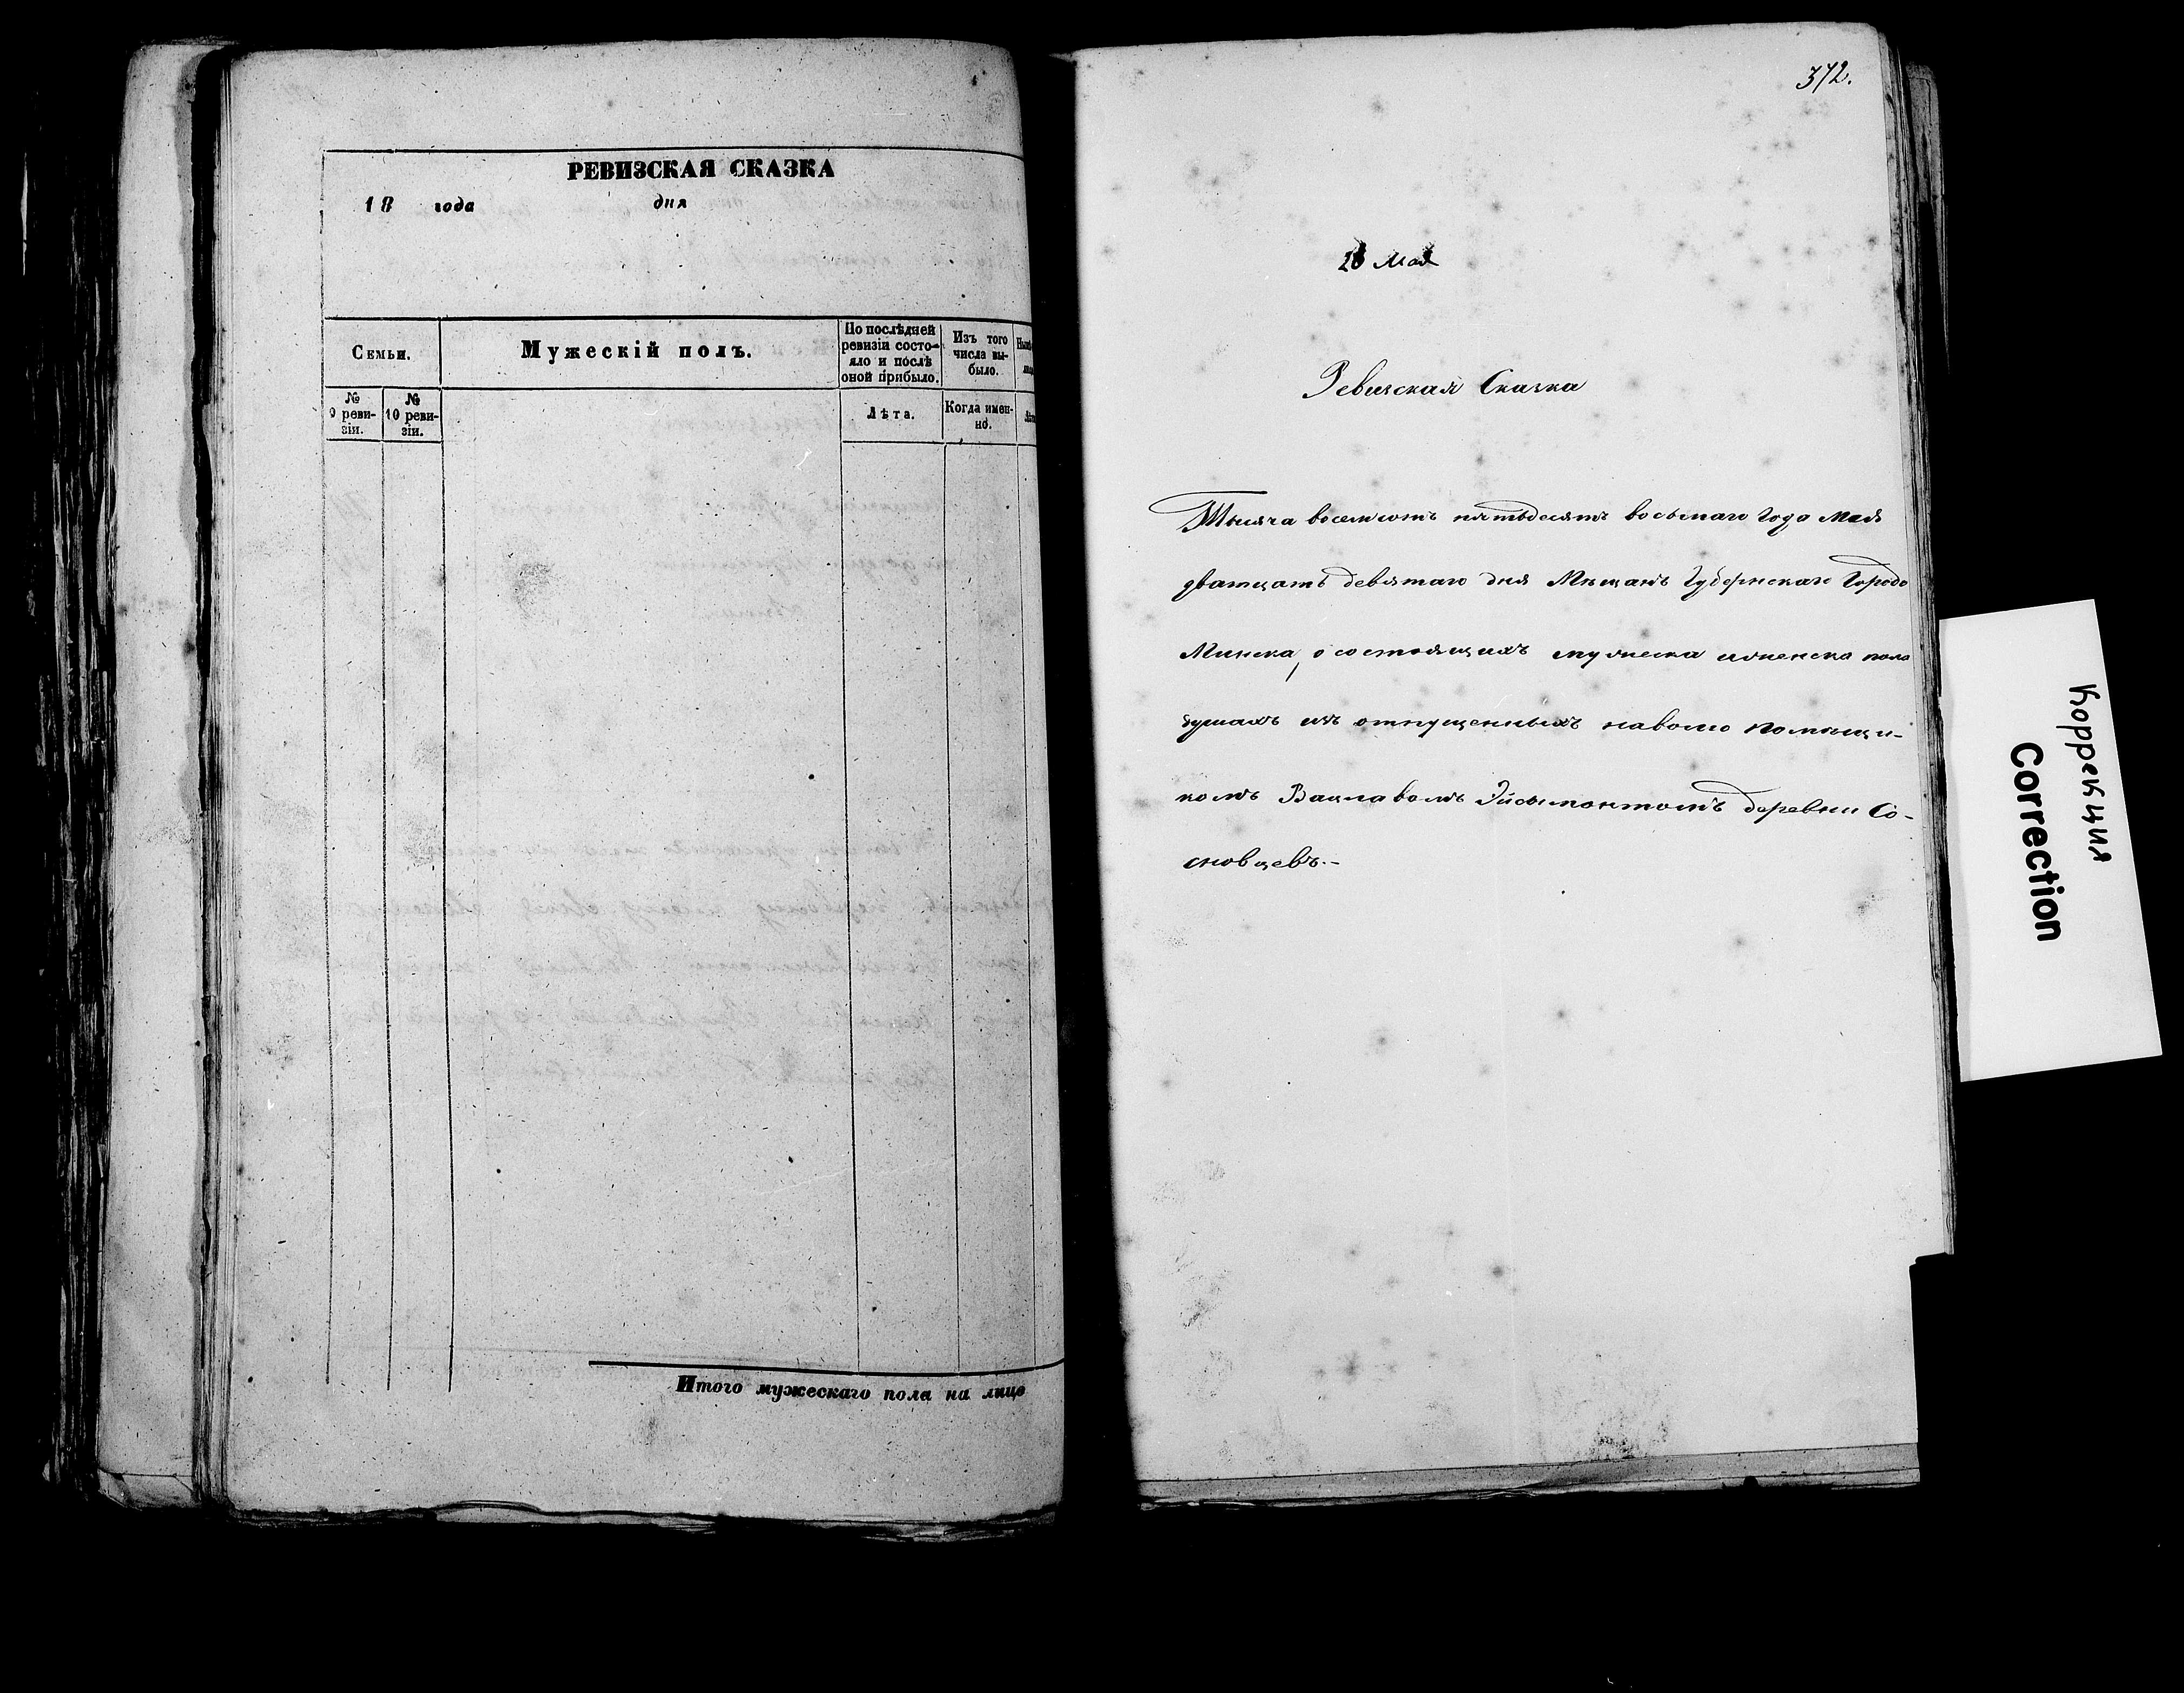 РЕВИЗСКАЯ СКАЗКА
18 года дня
Семьи.
Мужескій полъ.
По послѣдней ревизіи состо-
яло и послѣ
оной прибыло.
Изъ того
числа вы-
было.
№
9 реви-
зіи.
№
10 реви-
зіи.
Лѣта.
Когда имен-
но.
Итого мужескаго пола на лицо
372.
Мая
Ревизская Сказка
Тысяча восемсотъ пятьдесятъ восьмаго Года Мая
дватцать девятаго дня Мѣщанъ Губернскаго Города
Минска, о состоящихъ мужеска иженска пола
душахъ изъ отпущенныхъ наволю помѣщи-
комъ Вацлавомъ Эйсымонтомъ деревни Со-
сновцевъ.-
Коррекция
Correction